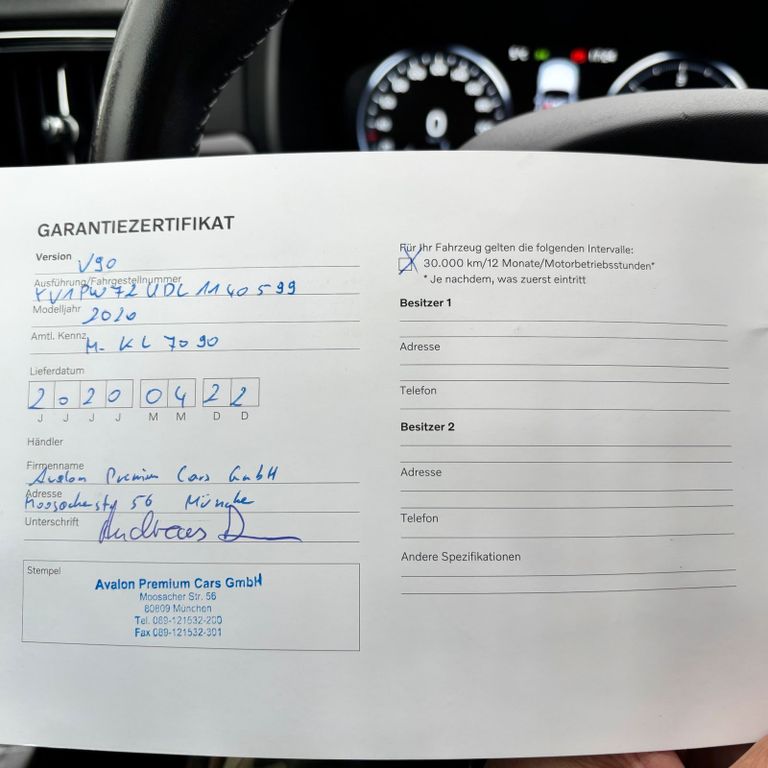 GARANTIEZERTIFIKAT
Version V90
Ausführung/Fahrgestellnummer
YV1PW72UDL1140599
Modelljahr 2020
Amtl. Kennz. M- KL 7090
Lieferdatum
2 0 2 0 0 4 2 2
J J J J M M D D
Händler
Firmenname
Avalon Premium Cars GmbH
Adresse
Moosacherstr 56 München
Unterschrift Andreas
Stempel
Avalon Premium Cars GmbH
Moosacher Str. 56
80809 München
Tel. 089-121532-200
Fax 089-121532-301
Für Ihr Fahrzeug gelten die folgenden Intervalle:
30.000 km/12 Monate/Motorbetriebsstunden*
* Je nachdem, was zuerst eintritt
Besitzer 1
Adresse
Telefon
Besitzer 2
Adresse
Telefon
Andere Spezifikationen
0